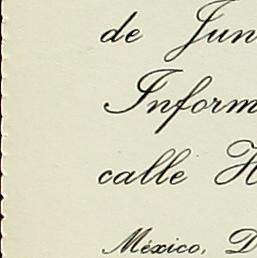 de Jun
Inform
calle H
México, D